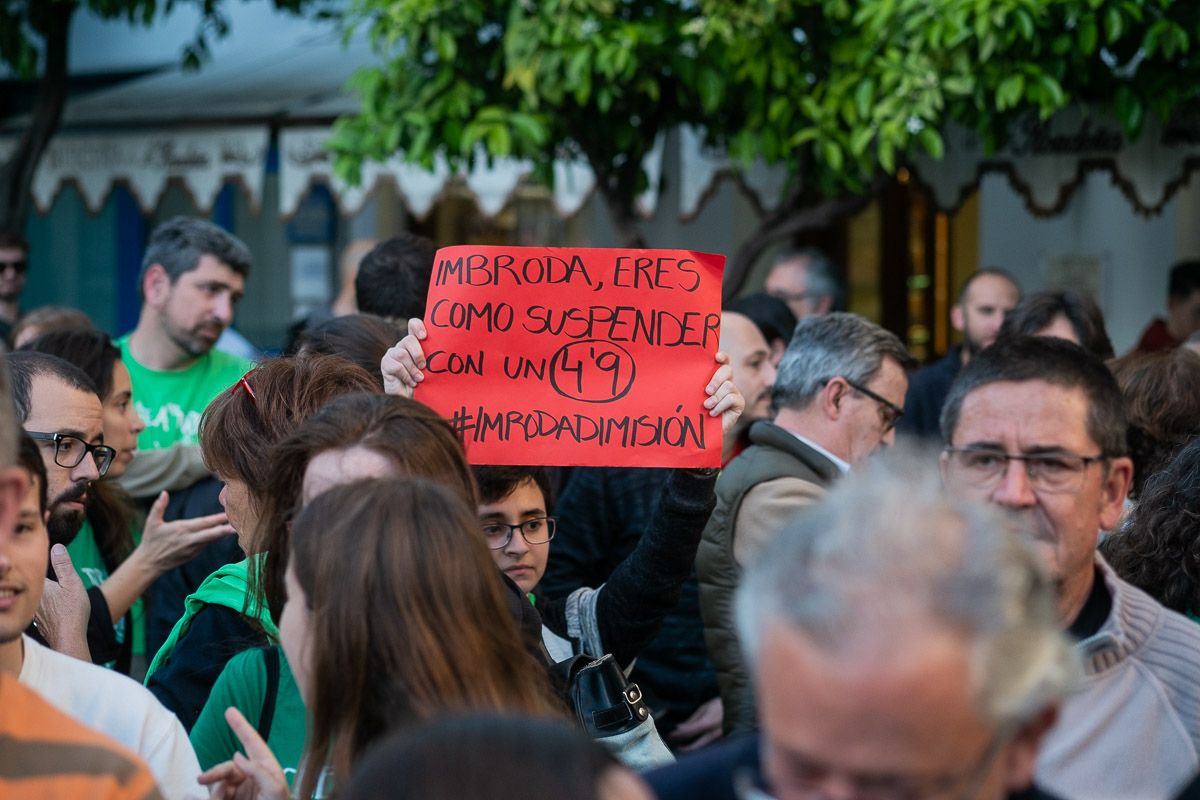 IMBRODA, ERES
COMO SUSPENDER
CON UN 4'9
#IMRODADIMISIÓN